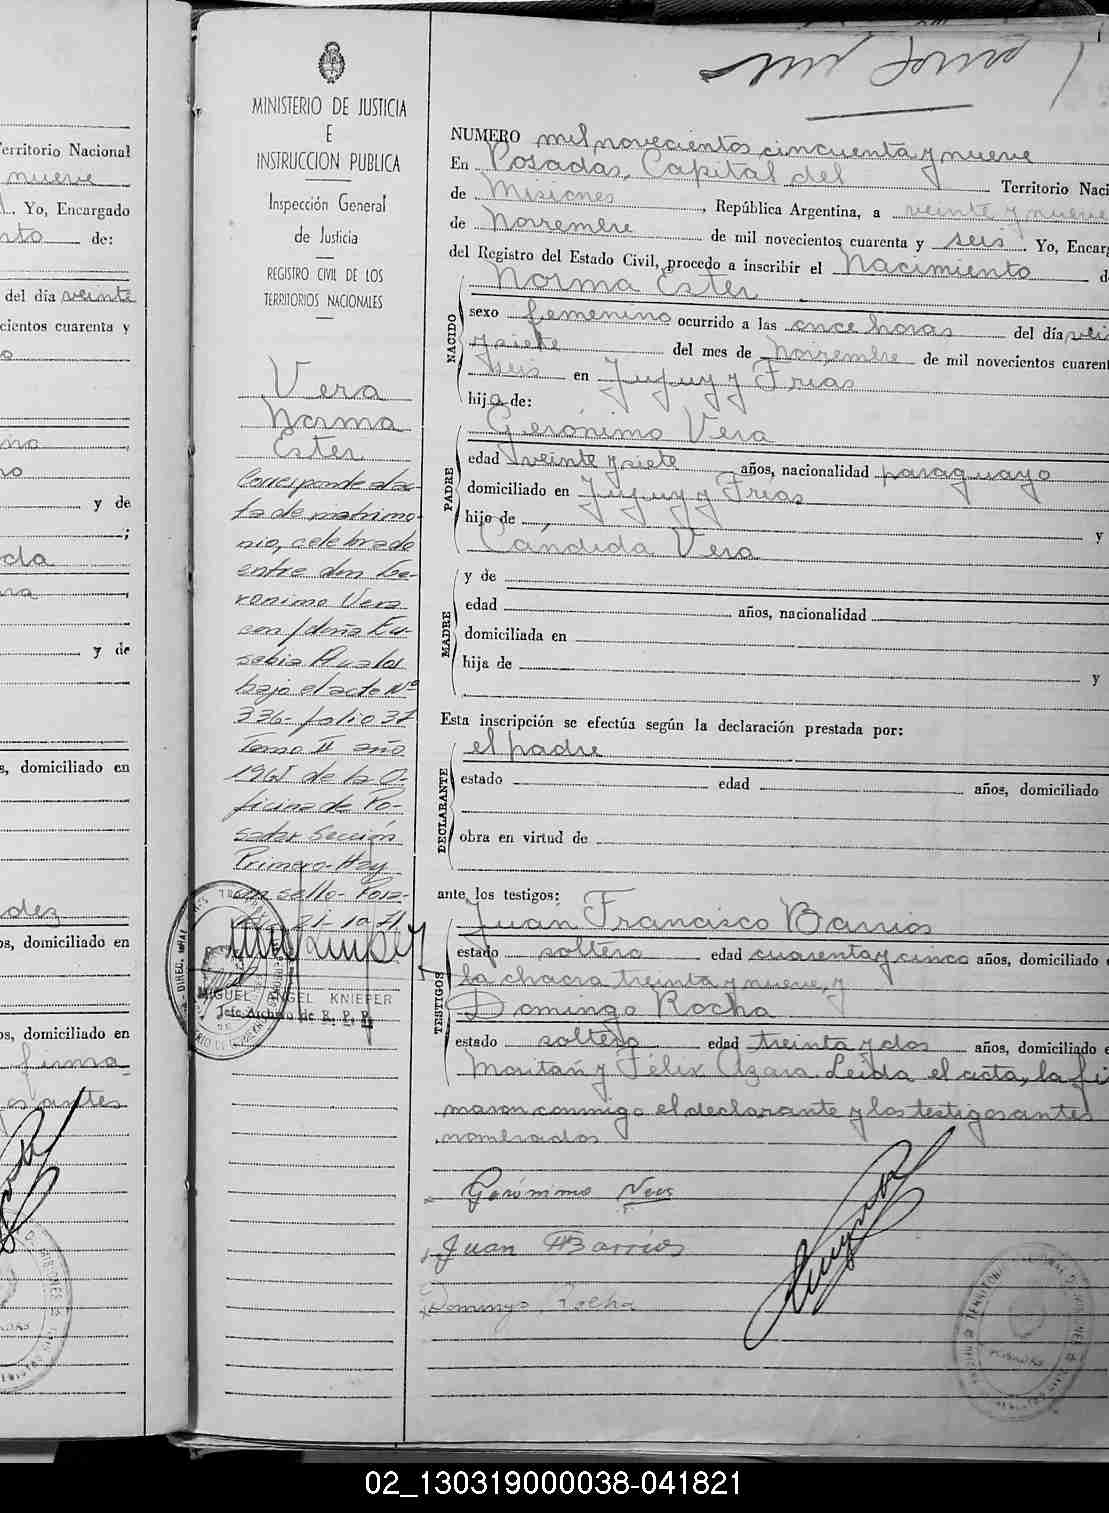 erritorio Nacional
nueve
Yo, Encargado
nto de:
del día veinte
cientos cuarenta y
y de
y de
s, domiciliado en
dez
os, domiciliado en
os, domiciliado en
firma
os antes
MINISTERIO DE JUSTICIA
E
INSTRUCCION PUBLICA
Inspección General
de Justicia
REGISTRO CIVIL DE LOS
TERRITORIOS NACIONALES
Vera
Norma
Ester
Corresponde al ac-
ta de matrimo-
nio, celebrado
entre don Ge-
ronimo Vera
con doña Eu-
sebia
bajo el acta Nº
336- folio 37
Tomo II año
de la O-
ficina de Po-
sadas Sección
Primera- Hay
un sello- Posa-
MIGUEL ANGEL KNIEPER
Jefe Archivo de R. P. P.
NUMERO mil novecientos cincuenta y nueve
En Posadas, Capital del Territorio Naci
de Misiones, República Argentina, a veinte y nueve
de Noviembre de mil novecientos cuarenta y seis. Yo, Encarg
del Registro del Estado Civil, procedo a inscribir el Nacimiento d
NACIDO
Norma Ester
sexo femenino ocurrido a las once horas del día vei
y siete del mes de Noviembre de mil novecientos cuarent
seis en Jujuy y Frias
hija de:
PADRE
Gerónimo Vera
edad veinte y siete años, nacionalidad paraguayo
domiciliado en Jujuy y Frias
hijo de y
Cándida Vera
MADRE
y de
edad años, nacionalidad
domiciliada en
hija de y
Esta inscripción se efectúa según la declaración prestada por:
DECLARANTE
el padre
estado edad años, domiciliado
obra en virtud de
ante los testigos:
TESTIGOS
Juan Francisco Barrios
estado soltero edad cuarenta y cinco años, domiciliado e
la chacra treinta y nueve, y
Domingo Rocha
estado soltero edad treinta y dos años, domiciliado e
Moritán y Félix Azara. Leída el acta, la fi
maron conmigo el declarante y los testigos antes
nombrados
Gerónimo Vera
Juan Barrios
Domingo Rocha
POSADAS
02_130319000038-041821